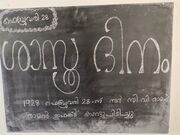 ഫെബ്രുവരി 28
ശാസ്ത്ര ദിനം
1928 ഫെബ്രുവരി 28-ന് സർ സി.വി രാമൻ
രാമൻ ഇഫക്ട് കണ്ടു പിടിച്ചു